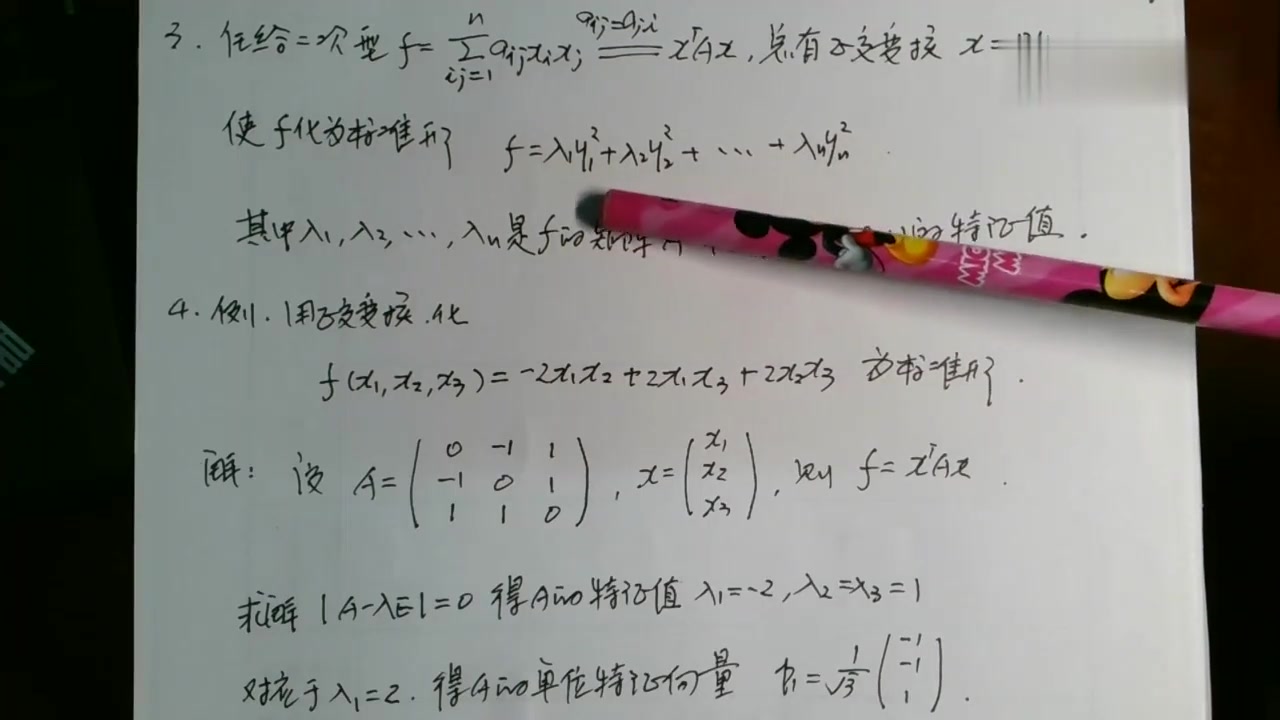 3. 任给二次型 f = ∑_{i,j=1}^{n} a_{ij}x_i x_j \overset{a_{ij}=a_{ji}}{=} xᵀAx, 总有正交变换 x =
使 f 化为标准形 f = λ₁y₁² + λ₂y₂² + ⋯ + λₙyₙ²
其中 λ₁, λ₂, ⋯, λₙ 是 f 的矩阵 的特征值.
4. 例1. 用正交变换.化
f(x₁, x₂, x₃) = -2x₁x₂ + 2x₁x₃ + 2x₂x₃ 为标准形.
解: 设 A = \begin{pmatrix} 0 & -1 & 1 \\ -1 & 0 & 1 \\ 1 & 1 & 0 \end{pmatrix}, x = \begin{pmatrix} x₁ \\ x₂ \\ x₃ \end{pmatrix}, 则 f = xᵀAx.
求解 |A-λE| = 0 得A的特征值 λ₁ = -2, λ₂ = λ₃ = 1
对应于 λ₁ = 2. 得A的单位特征向量 p₁ = \frac{1}{\sqrt{3}} \begin{pmatrix} -1 \\ -1 \\ 1 \end{pmatrix}.